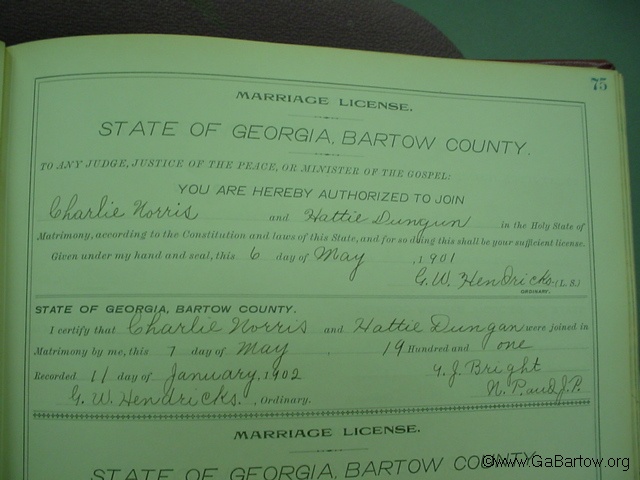 75
MARRIAGE LICENSE.
STATE OF GEORGIA, BARTOW COUNTY.
TO ANY JUDGE, JUSTICE OF THE PEACE, OR MINISTER OF THE GOSPEL:
YOU ARE HEREBY AUTHORIZED TO JOIN
Charlie Norris and Hattie Dungun in the Holy State of
Matrimony, according to the Constitution and laws of this State, and for so doing this shall be your sufficient license.
Given under my hand and seal, this 6 day of May, 1901
G. W. Hendricks. (L. S.)
ORDINARY.
STATE OF GEORGIA, BARTOW COUNTY.
I certify that Charlie Norris and Hattie Dungan were joined in
Matrimony by me, this 7 day of May 19 Hundred and one
Recorded 11 day of January, 1902 G. J. Bright
G. W. Hendricks. , Ordinary. N. P. and J. P.
MARRIAGE LICENSE.
STATE OF GEORGIA, BARTOW COUNTY.
©www.GaBartow.org